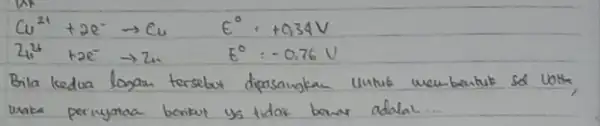 Cu²⁺ + 2e⁻ → Cu E° = +0,34 V
Zn²⁺ + 2e⁻ → Zn E° = -0,76 V
Bila kedua logam tersebut dipasangkan untuk membentuk sel volta,
maka pernyataa berikut yg tidak benar adalah ...